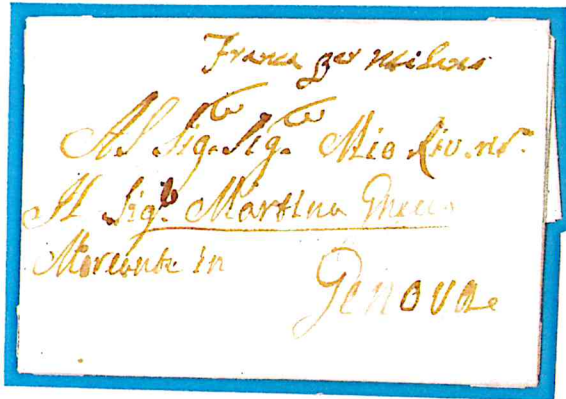 Franca per Milano
Al Sig.re Sig.re Mio Riv.
Il Sig.r Martino
Mercante in
Genova